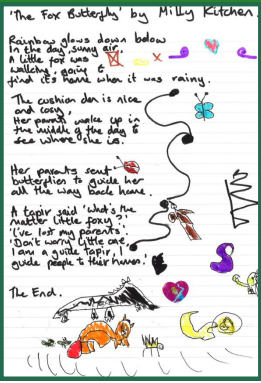 'The Fox Butterfly' by Milly Kitchen.
Rainbow glows down below
In the day, sunny air.
A little fox was
walking, going
find its home when it was rainy.
The cushion den is nice
and cosy.
Her parents wake up in
the middle of the day to
see where she is.
Her parents sent
butterflies to guide her
all the way back home.
A tapir said 'what's the
matter little foxy?'
'I've lost my parents'.
'Don't worry little one,
I am a guide tapir, I
guide people to their homes.'
The End.